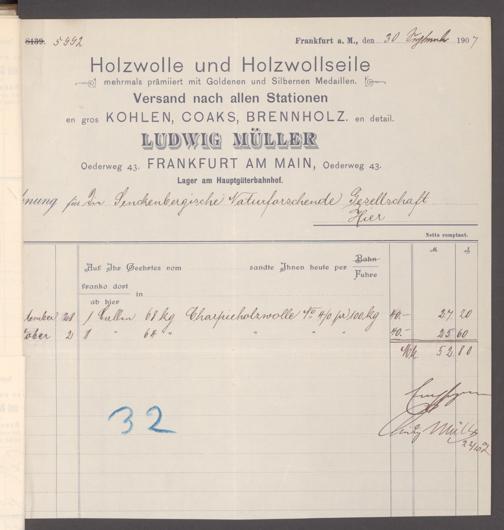 8139. 5992
Frankfurt a. M., den 30 1907
Holzwolle und Holzwollseile
mehrmals prämiiert mit Goldenen und Silbernen Medaillen.
Versand nach allen Stationen
en gros KOHLEN, COAKS, BRENNHOLZ. en detail.
LUDWIG MÜLLER
Oederweg 43. FRANKFURT AM MAIN, Oederweg 43.
Lager am Hauptgüterbahnhof.
nung für Die Senckenbergische Naturforschende Gesellschaft
Hier
Netto comptant.
M. ₰
Auf Ihr Geehrtes vom sandte Ihnen heute per Bahn
Fuhre
franko dort
ab hier in
tember 28 1 Ballen 68 kg Charpieholzwolle No 4/0 pr 100 kg 40.- 27 20
tober 2 1 " 64 " " " " 40.- 25 60
Mk 52 80
Ludwig Müller
32